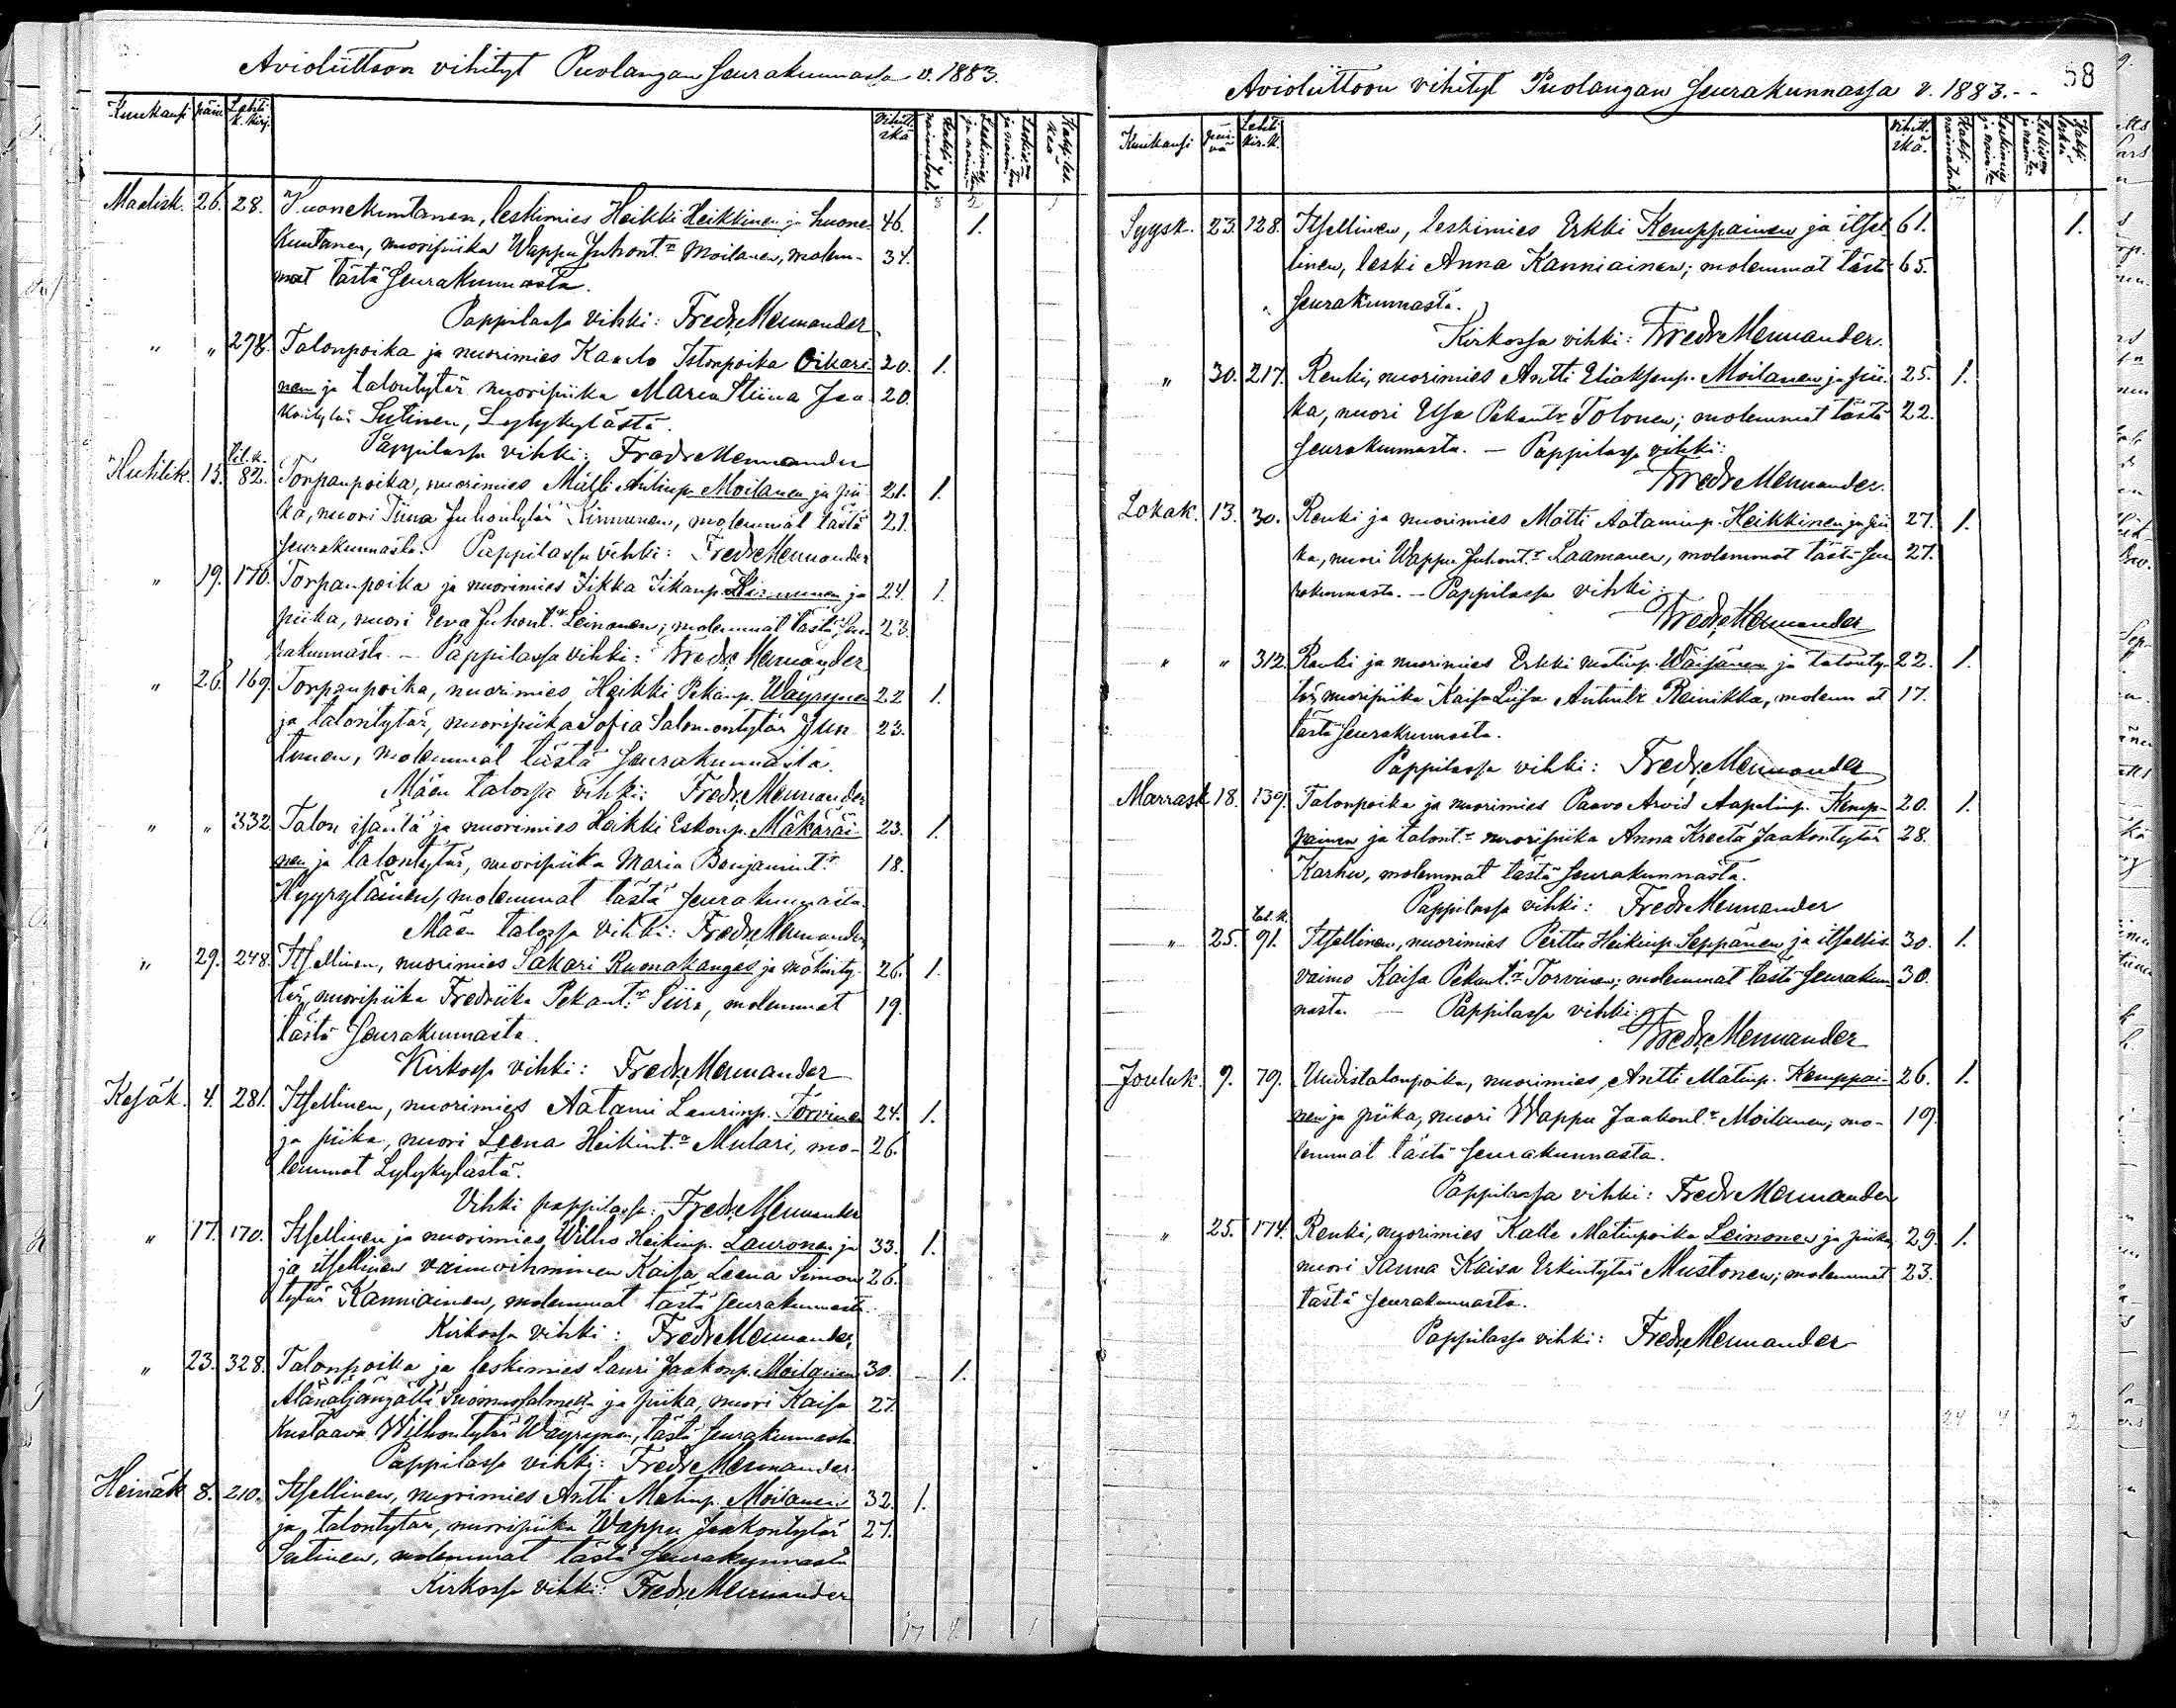 Avioliittoon vihityt Puolangan Seurakunnassa v. 1883.
Kuukausi päiv. Lehti k. kirj. Vihitt. ikä
Maalisk. 26. 28. Huonekuntanen, leskimies Heikki Heikkinen ja huone- 46. 1.
kuntanen, nuoripiika Wappu Juhont:r Moilanen, molem- 34.
mat tästä Seurakunnasta.
Pappilassa vihki: Fredr. Mennander
" " 278. Talonpoika ja nuorimies Kaarlo Istonpoika Oikari- 20. 1.
nen ja talontytär nuoripiika Maria Stiina Jaa- 20.
kontytär Sutinen, Lylykylästä.
Pappilassa vihki: Fredr Mennander
Huhtik. 15. 82. Torpanpoika, nuorimies Matti Antinp. Moilanen ja pii- 21. 1.
ka, nuori Tiina Juhontytär Kinnunen, molemmat tästä 21.
Seurakunnasta. Pappilassa vihki: Fredr Mennander
" 19. 170. Torpanpoika ja nuorimies Iikka Iikanp. Kinnunen ja 24. 1.
piika, nuori Eeva Juhont:r Leinonen; molemmat tästä Seu- 23.
rakunnasta. - Pappilassa vihki: Fredr. Mennander
" 26. 169. Torpanpoika, nuorimies Heikki Pekanp. Wäyrynen 22 1.
ja talontytär, nuoripiika Sofia Salomontytär Jun- 23.
tunen, molemmat tästä Seurakunnasta.
Mäen talossa vihki: Fredr. Mennander
" " 332 Talon isäntä ja nuorimies Heikki Eskonp. Mäkäräi- 23. 1.
nen ja talontytär, nuoripiika Maria Benjamint:r 18.
Hyyryläinen, molemmat tästä Seurakunnasta.
Mäen talossa vihki: Fredr Mennander
" 29. 248. Itsellinen, nuorimies Sakari Ruonakangas ja mökinty- 26. 1.
tär, nuoripiika Fredriika Pekant:r Siira, molemmat 19.
tästä Seurakunnasta.
Kirkossa vihki: Fredr. Mennander
Kesäk. 4. 281. Itsellinen, nuorimies Aatami Laurinp. Torvinen 24. 1.
ja piika, nuori Leena Heikint:r Mulari, mo- 26.
lemmat Lylykylästä.
Vihki pappilassa: Fredr. Mennander
" 17. 170. Itsellinen ja nuorimies, Wilho Heikinp. Lauronen ja 33. 1.
ja itsellinen vaimoihminen Kaisa Leena Simon- 26.
tytär Kanniainen, molemmat tästä Seurakunnasta.
Kirkossa vihki: Fredr. Mennander,
" 23. 328. Talonpoika ja leskimies Lauri Jaakonp. Moilanen 30. 1.
Suomussalmelta ja piika, nuori Kaisa 27.
Kustaava Wilhontytär Wäyrynen, tästä Seurakunnasta.
Pappilassa vihki: Fredr Mennander
Heinäk 8. 210. Itsellinen, nuorimies Antti Matinp. Moilanen 32. 1.
ja talontytär, nuoripiika Wappu Jaakontytär 27.
Sutinen, molemmat tästä Seurakunnasta
Kirkossa vihki: Fredr. Mennander
17
Avioliittoon vihityt Puolangan Seurakunnassa v. 1883. - - 58
Kuukausi päivä Lehti kir. k. Vihitt. ikä.
Syysk. 23. 128. Itsellinen, leskimies Erkki Kemppainen ja itsel- 61. 1.
linen, leski Anna Kanniainen; molemmat tästä 65.
Seurakunnasta.
Kirkossa vihki: Fredr Mennander.
" 30. 217. Renki, nuorimies Antti Eliaksenp. Moilanen ja pii- 25. 1.
ka, nuori Elsa Pekantr Tolonen; molemmat tästä 22.
Seurakunnasta. - Pappilassa vihki:
Fredr Mennander.
Lokak. 13. 30. Renki ja nuorimies Matti Aataminp. Heikkinen ja pii- 27. 1.
ka, nuori Wappu Juhont:r Laamanen, molemmat tästä Seu- 27.
rakunnasta. - Pappilassa vihki:
Fredr. Mennander
" " 312. Renki ja nuorimies Erkki Matinp. Wäisänen ja talonty- 22. 1.
tär, nuoripiika Kaisa Liisa Antintr Rainikka, molemmat 17.
tästä Seurakunnasta.
Pappilassa vihki: Fredr. Mennander
Marrask 18. 139. Talonpoika ja nuorimies Paavo Arvid Aapelinp. Kemp- 20. 1.
painen ja talont:r nuoripiika Anna Kreeta Jaakontytär 28.
Karhu, molemmat tästä Seurakunnasta.
Pappilassa vihki: Fredr Mennander
" 25. 91. Itsellinen, nuorimies Perttu Heikinp. Seppänen ja itsellis- 30. 1.
vaimo Kaisa Pekant:r Torvinen; molemmat tästä Seurakun- 30.
nasta. - Pappilassa vihki:
Fredr. Mennander
Jouluk. 9. 79. Uudistalonpoika, nuorimies Antti Matinp. Kemppai- 26. 1.
nen ja piika, nuori Wappu Jaakont:r Moilanen; mo- 19.
lemmat tästä Seurakunnasta.
Pappilassa vihki: Fredr Mennander
" 25. 174. Renki, nuorimies Kalle Matinpoika Leinonen ja piika, 29. 1.
nuori Sanna Kaisa Erkintytär Mustonen; molemmat 23.
tästä Seurakunnasta.
Pappilassa vihki: Fredr. Mennander
24 4 2